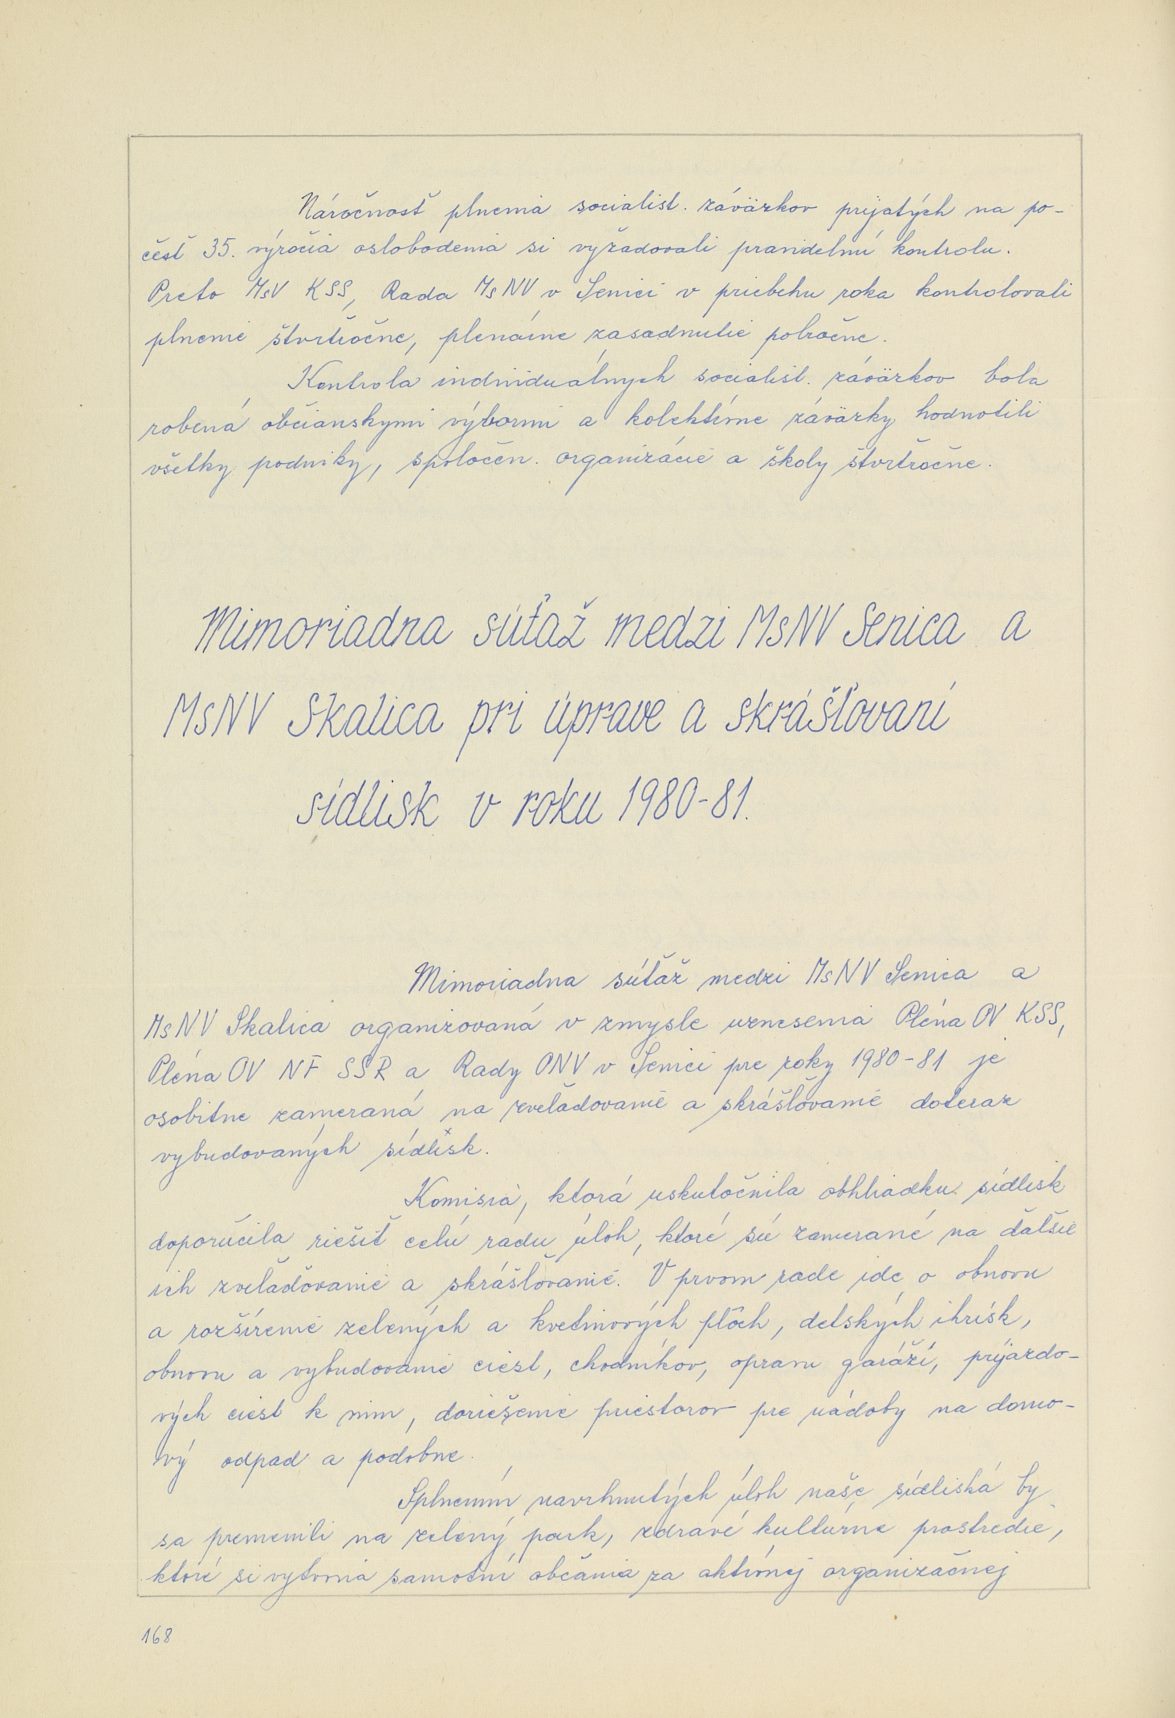 Náročnosť plnenia socialist. záväzkov prijatých na po-
česť 35. výročia oslobodenia si vyžadovali pravidelnú kontrolu.
Preto MsV KSS, Rada MsNV v Senici v priebehu roka kontrolovali
plnenie štvrťročne, plenárne zasadnutie polročne.
Kontrola individuálnych socialist. záväzkov bola
robená občianskymi výbormi a kolektívne záväzky hodnotili
všetky podniky, spoločen. organizácie a školy štvrťročne.
Mimoriadna súťaž medzi MsNV Senica a
MsNV Skalica pri úprave a skrášľovaní
sídlisk v roku 1980-81.
Mimoriadna súťaž medzi MsNV Senica a
MsNV Skalica organizovaná v zmysle uznesenia Pléna OV KSS,
Pléna OV NF SSR a Rady ONV v Senici pre roky 1980-81 je
osobitne zameraná na zveľaďovanie a skrášľovanie doteraz
vybudovaných sídlisk.
Komisia, ktorá uskutočnila obhliadku sídlisk
doporučila riešiť celú radu úloh, ktoré sú zamerané na ďalšie
ich zveľaďovanie a skrášľovanie. V prvom rade ide o obnovu
a rozšírenie zelených a kvetinových plôch, detských ihrísk,
obnovu a vybudovanie ciest, chodníkov, opravu garáží, príjazdo-
vých ciest k nim, doriešenie priestorov pre nádoby na domo-
vý odpad a podobne.
Splnením navrhnutých úloh naše sídliská by
sa premenili na zelený park, zdravé kultúrne prostredie,
ktoré si vytvoria samotní občania za aktívnej organizačnej
168